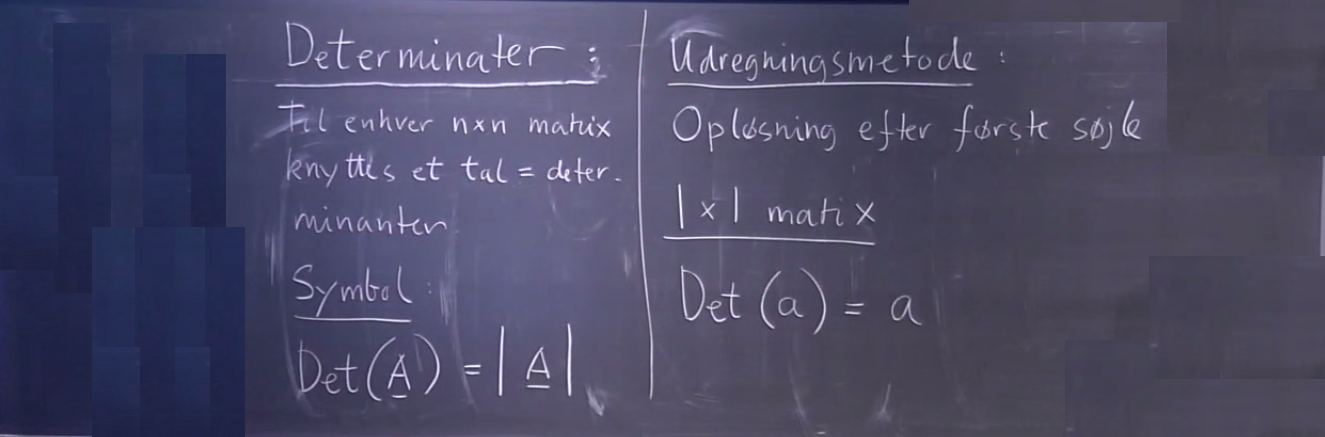 Determinater :
Til enhver n×n matrix
knyttes et tal = deter-
minanten.
Symbol :
Det(A) = |A|
Udregningsmetode :
Opløsning efter første søjle
1×1 matix
Det(a) = a